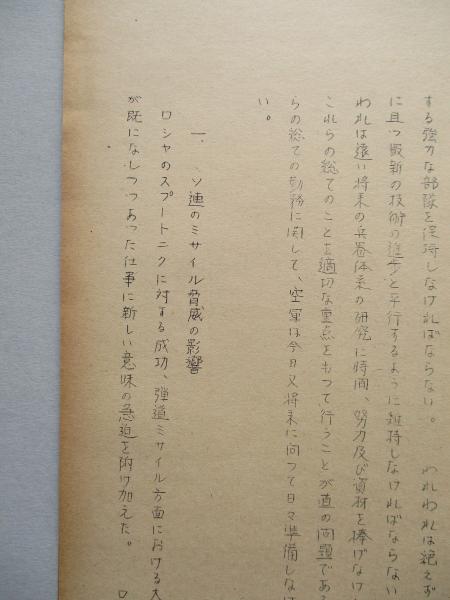 する強力な部隊を保持しなければならない。 われわれは絶えず
に且つ最新の技術の進歩と平行するように維持しなければならない
われは遠い将来の兵器体系の研究に時間、努力及び資材を捧げなけ
これらの総てのことを適切な重点をもつて行うことが直の問題である
らの総ての勤務に関して、空軍は今日又将来に向つて日々準備しなけ
い。
一、 ソ連のミサイル脅威の影響
ロシヤのスプートニクに対する成功、弾道ミサイル方面における大
が既になしつつあつた仕事に新しい意味の急迫を附け加えた。 ロ